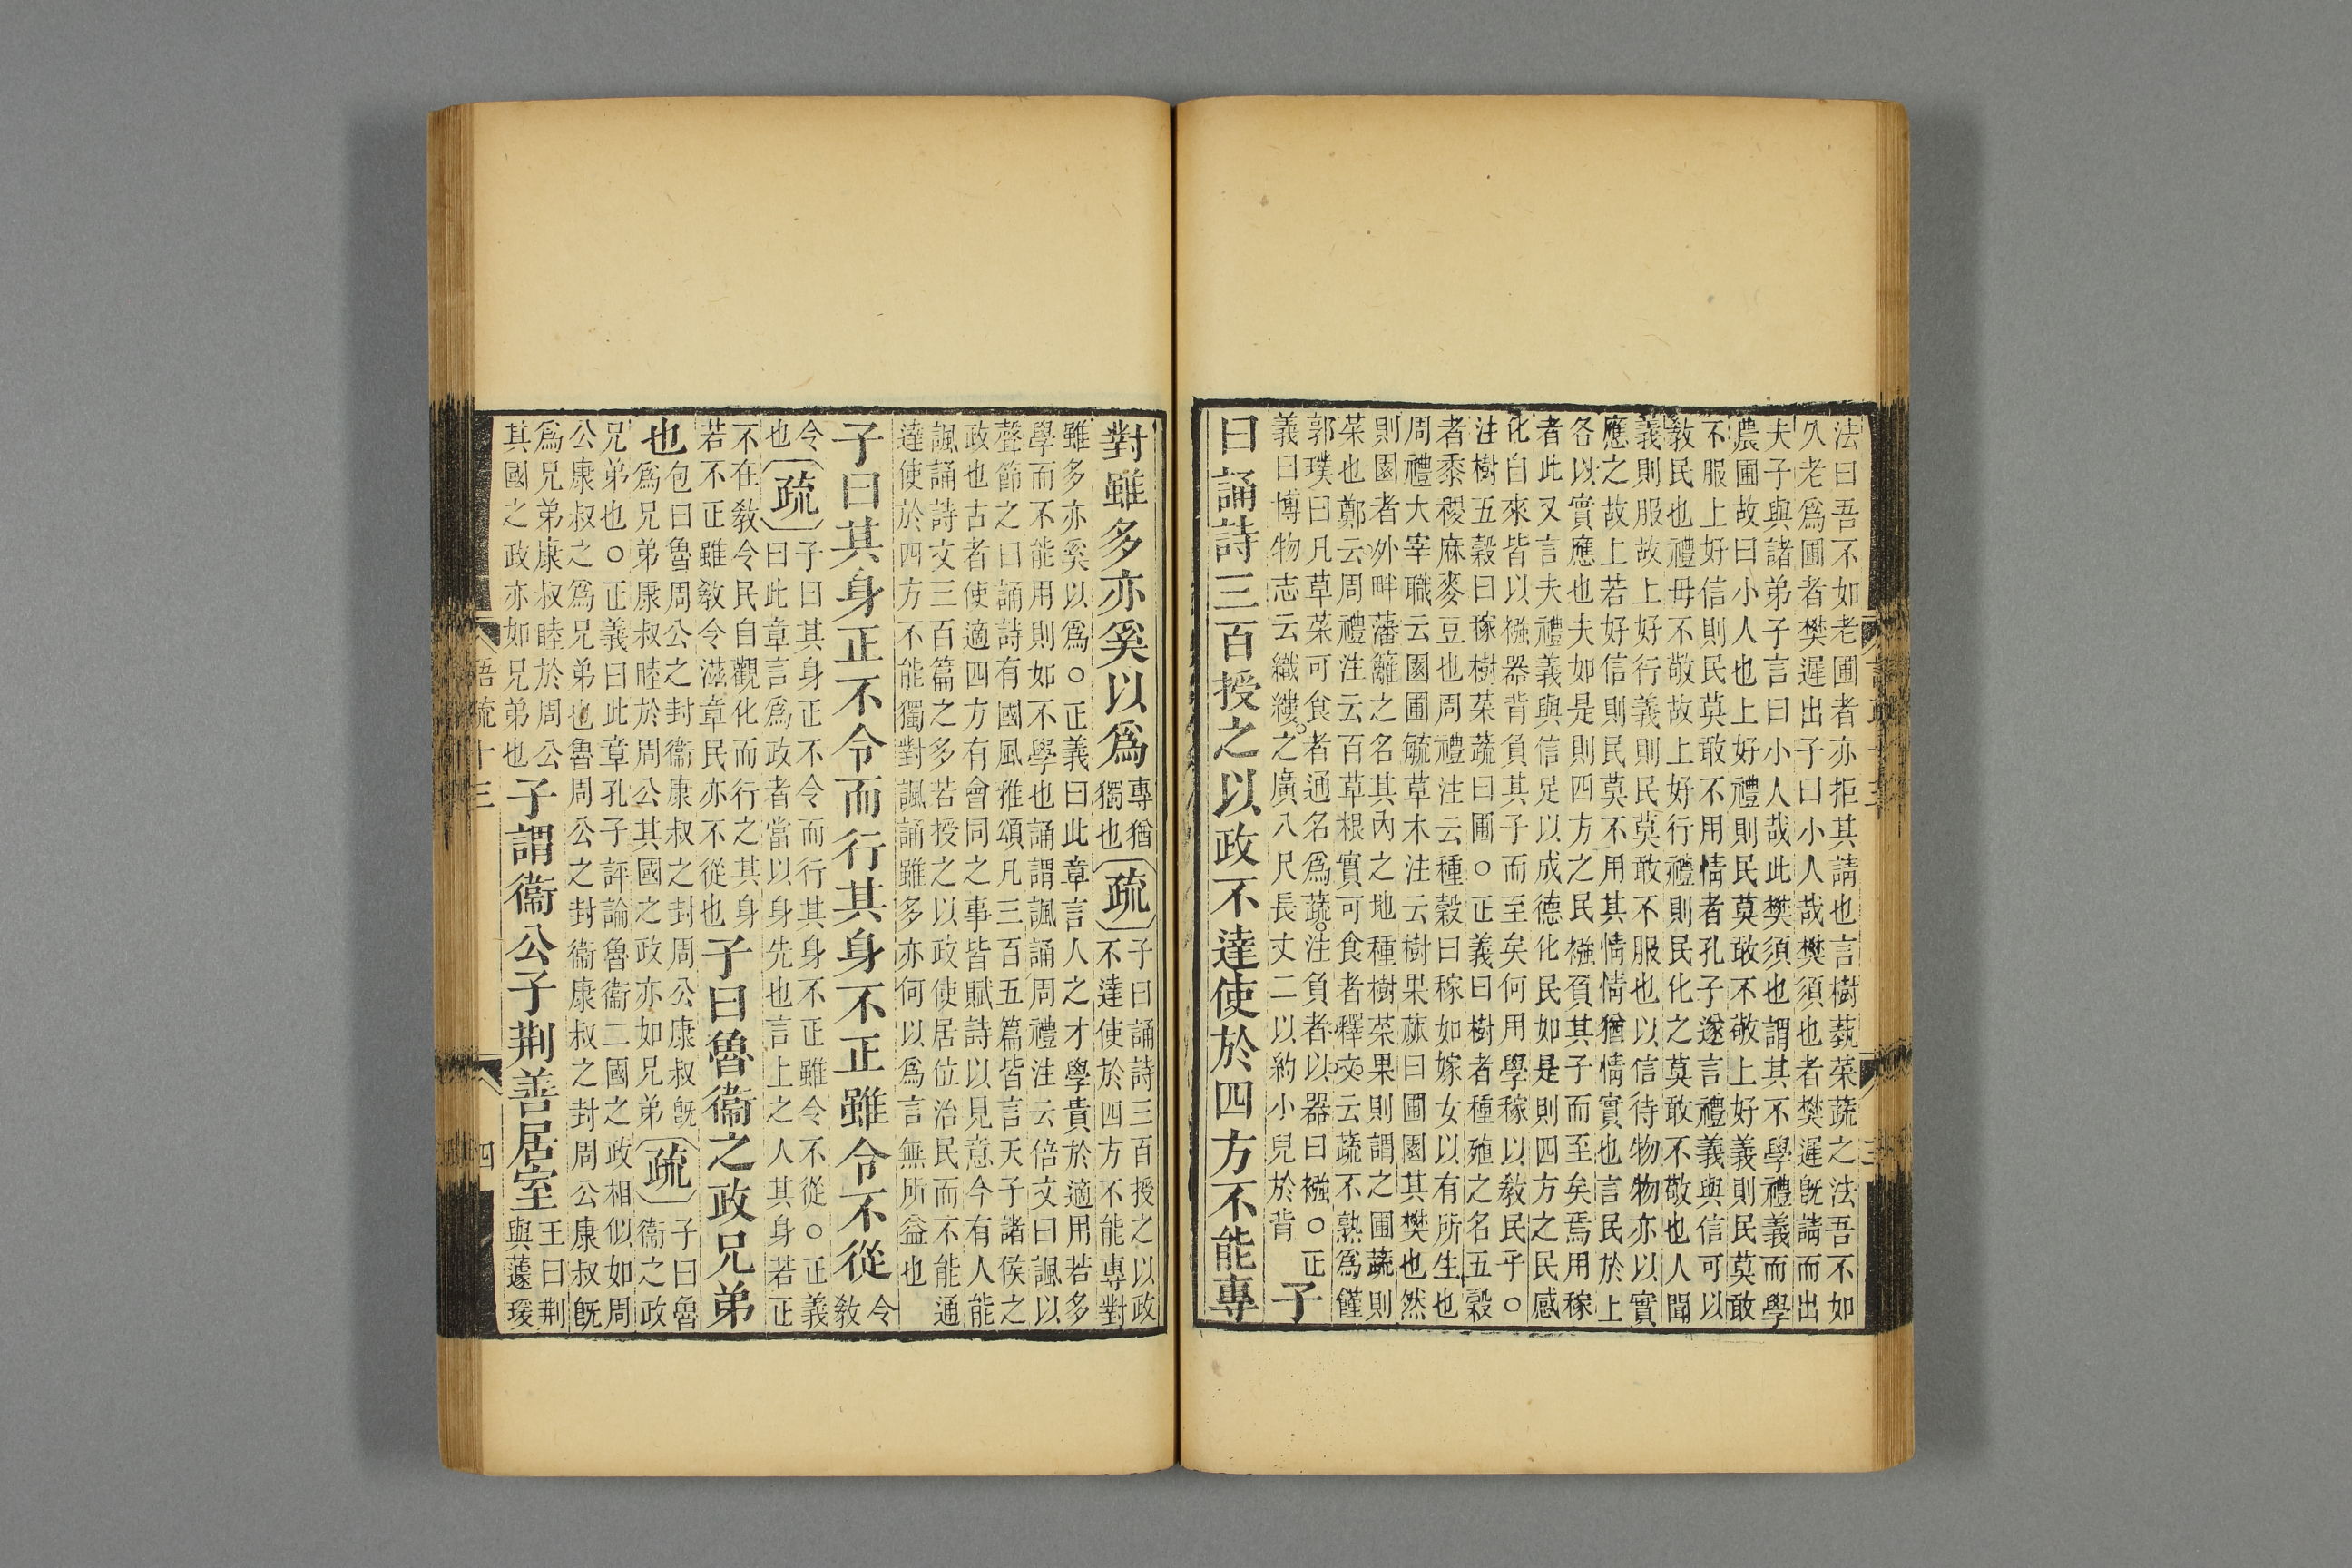 法曰吾不如老圃者亦拒其請也言樹蓺菜蔬之法吾不如
久老爲圃者樊遲出子曰小人哉樊須也者樊遲旣請而出
夫子與諸弟子言曰小人哉此樊須也謂其不學禮義而學
農圃故曰小人也上好禮則民莫敢不敬上好義則民莫敢
不服上好信則民莫敢不用情者孔子遂言禮義與信可以
敎民也禮毋不敬故上好行禮則民化之莫敢不敬也人聞
義則服故上好行義則民莫敢不服也以信待物物亦以實
應之故上若好信則民莫不用其情情猶情實也言民於上
各以實應也夫如是則四方之民襁負其子而至矣焉用稼
者此又言夫禮義與信足以成德化民如是則四方之民感
化自來皆以襁器背負其子而至矣何用學稼以敎民乎○
注樹五穀曰稼樹菜蔬曰圃○正義曰樹者種殖之名五穀
者黍稷麻麥豆也周禮注云種穀曰稼如嫁女以有所生也
周禮大宰職云園圃毓草木注云樹果蓏曰圃園其樊也然
則園者外畔藩籬之名其內之地種樹菜果則謂之圃蔬則
菜也鄭云周禮注云百草根實可食者釋文云蔬不熟爲僅
郭璞曰凡草菜可食者通名爲蔬○注負者以器曰襁○正
義曰博物志云織縷之廣八尺長丈二以約小兒於背
子
曰誦詩三百授之以政不達使於四方不能專
對雖多亦奚以爲
專猶
獨也
疏
子曰誦詩三百授之以政
不達使於四方不能專對
雖多亦奚以爲○正義曰此章言人之才學貴於適用若多
學而不能用則如不學也誦謂諷誦周禮注云倍文曰諷以
聲節之曰誦詩有國風雅頌凡三百五篇皆言天子諸侯之
政也古者使適四方有會同之事皆賦詩以見意今有人能
諷誦詩文三百篇之多若授之以政使居位治民而不能通
達使於四方不能獨對諷誦雖多亦何以爲言無所益也
子曰其身正不令而行其身不正雖令不從
令
敎
令
也
疏
子曰其身正不令而行其身不正雖令不從○正義
曰此章言爲政者當以身先也言上之人其身若正
不在敎令民自觀化而行之其身
若不正雖敎令滋章民亦不從也
子曰魯衞之政兄弟
也
包曰魯周公之封衞康叔之封周公康叔旣
爲兄弟康叔睦於周公其國之政亦如兄弟
疏
子曰魯
衞之政
兄弟也○正義曰此章孔子評論魯衞二國之政相似如周
公康叔之爲兄弟也魯周公之封衞康叔之封周公康叔旣
爲兄弟康叔睦於周公
其國之政亦如兄弟也
子謂衞公子荆善居室
王曰荆
與蘧瑗